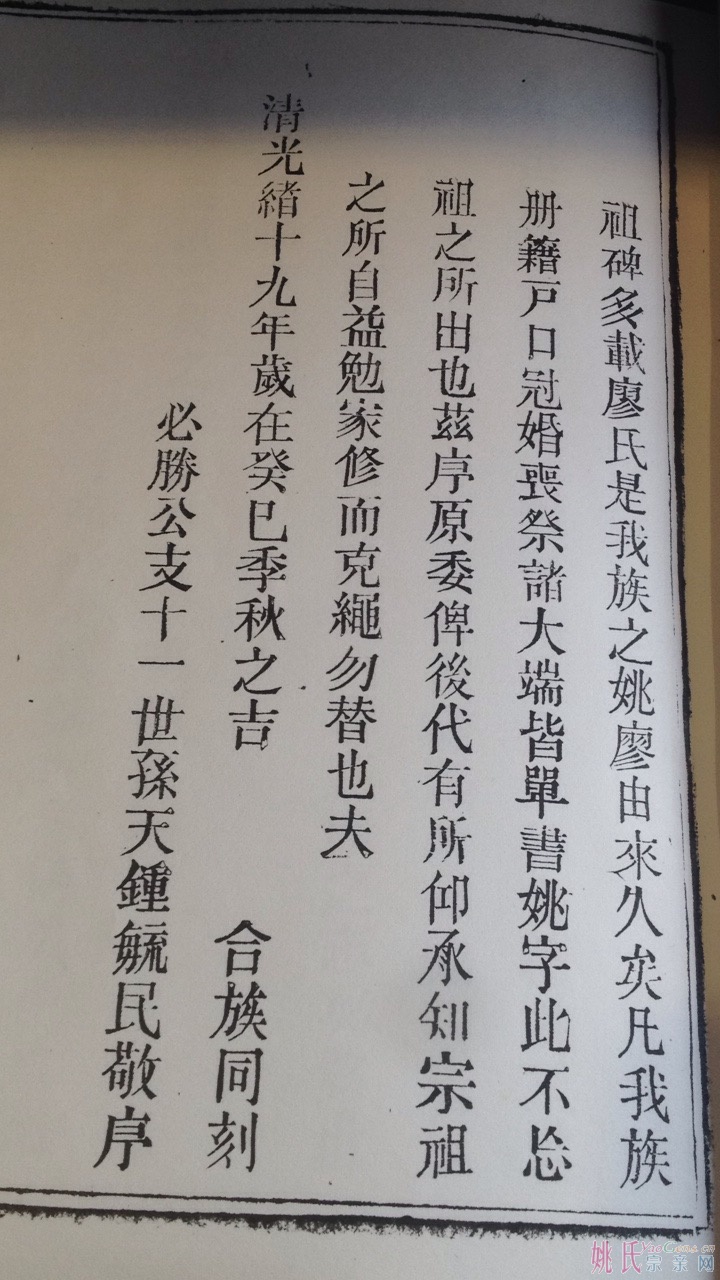 祖碑多載廖氏是我族之姚廖由來久矣凡我族
册籍戸口冠婚喪祭諸大端皆單書姚字此不忘
祖之所由也茲序原委俾後代有所仰承知宗祖
之所自益勉家修而克繩勿替也夫
清光緒十九年歲在癸巳季秋之吉
合族同刻
必勝公支十一世孫天鍾毓民敬序
姚氏宗亲网
YaoGens.cn